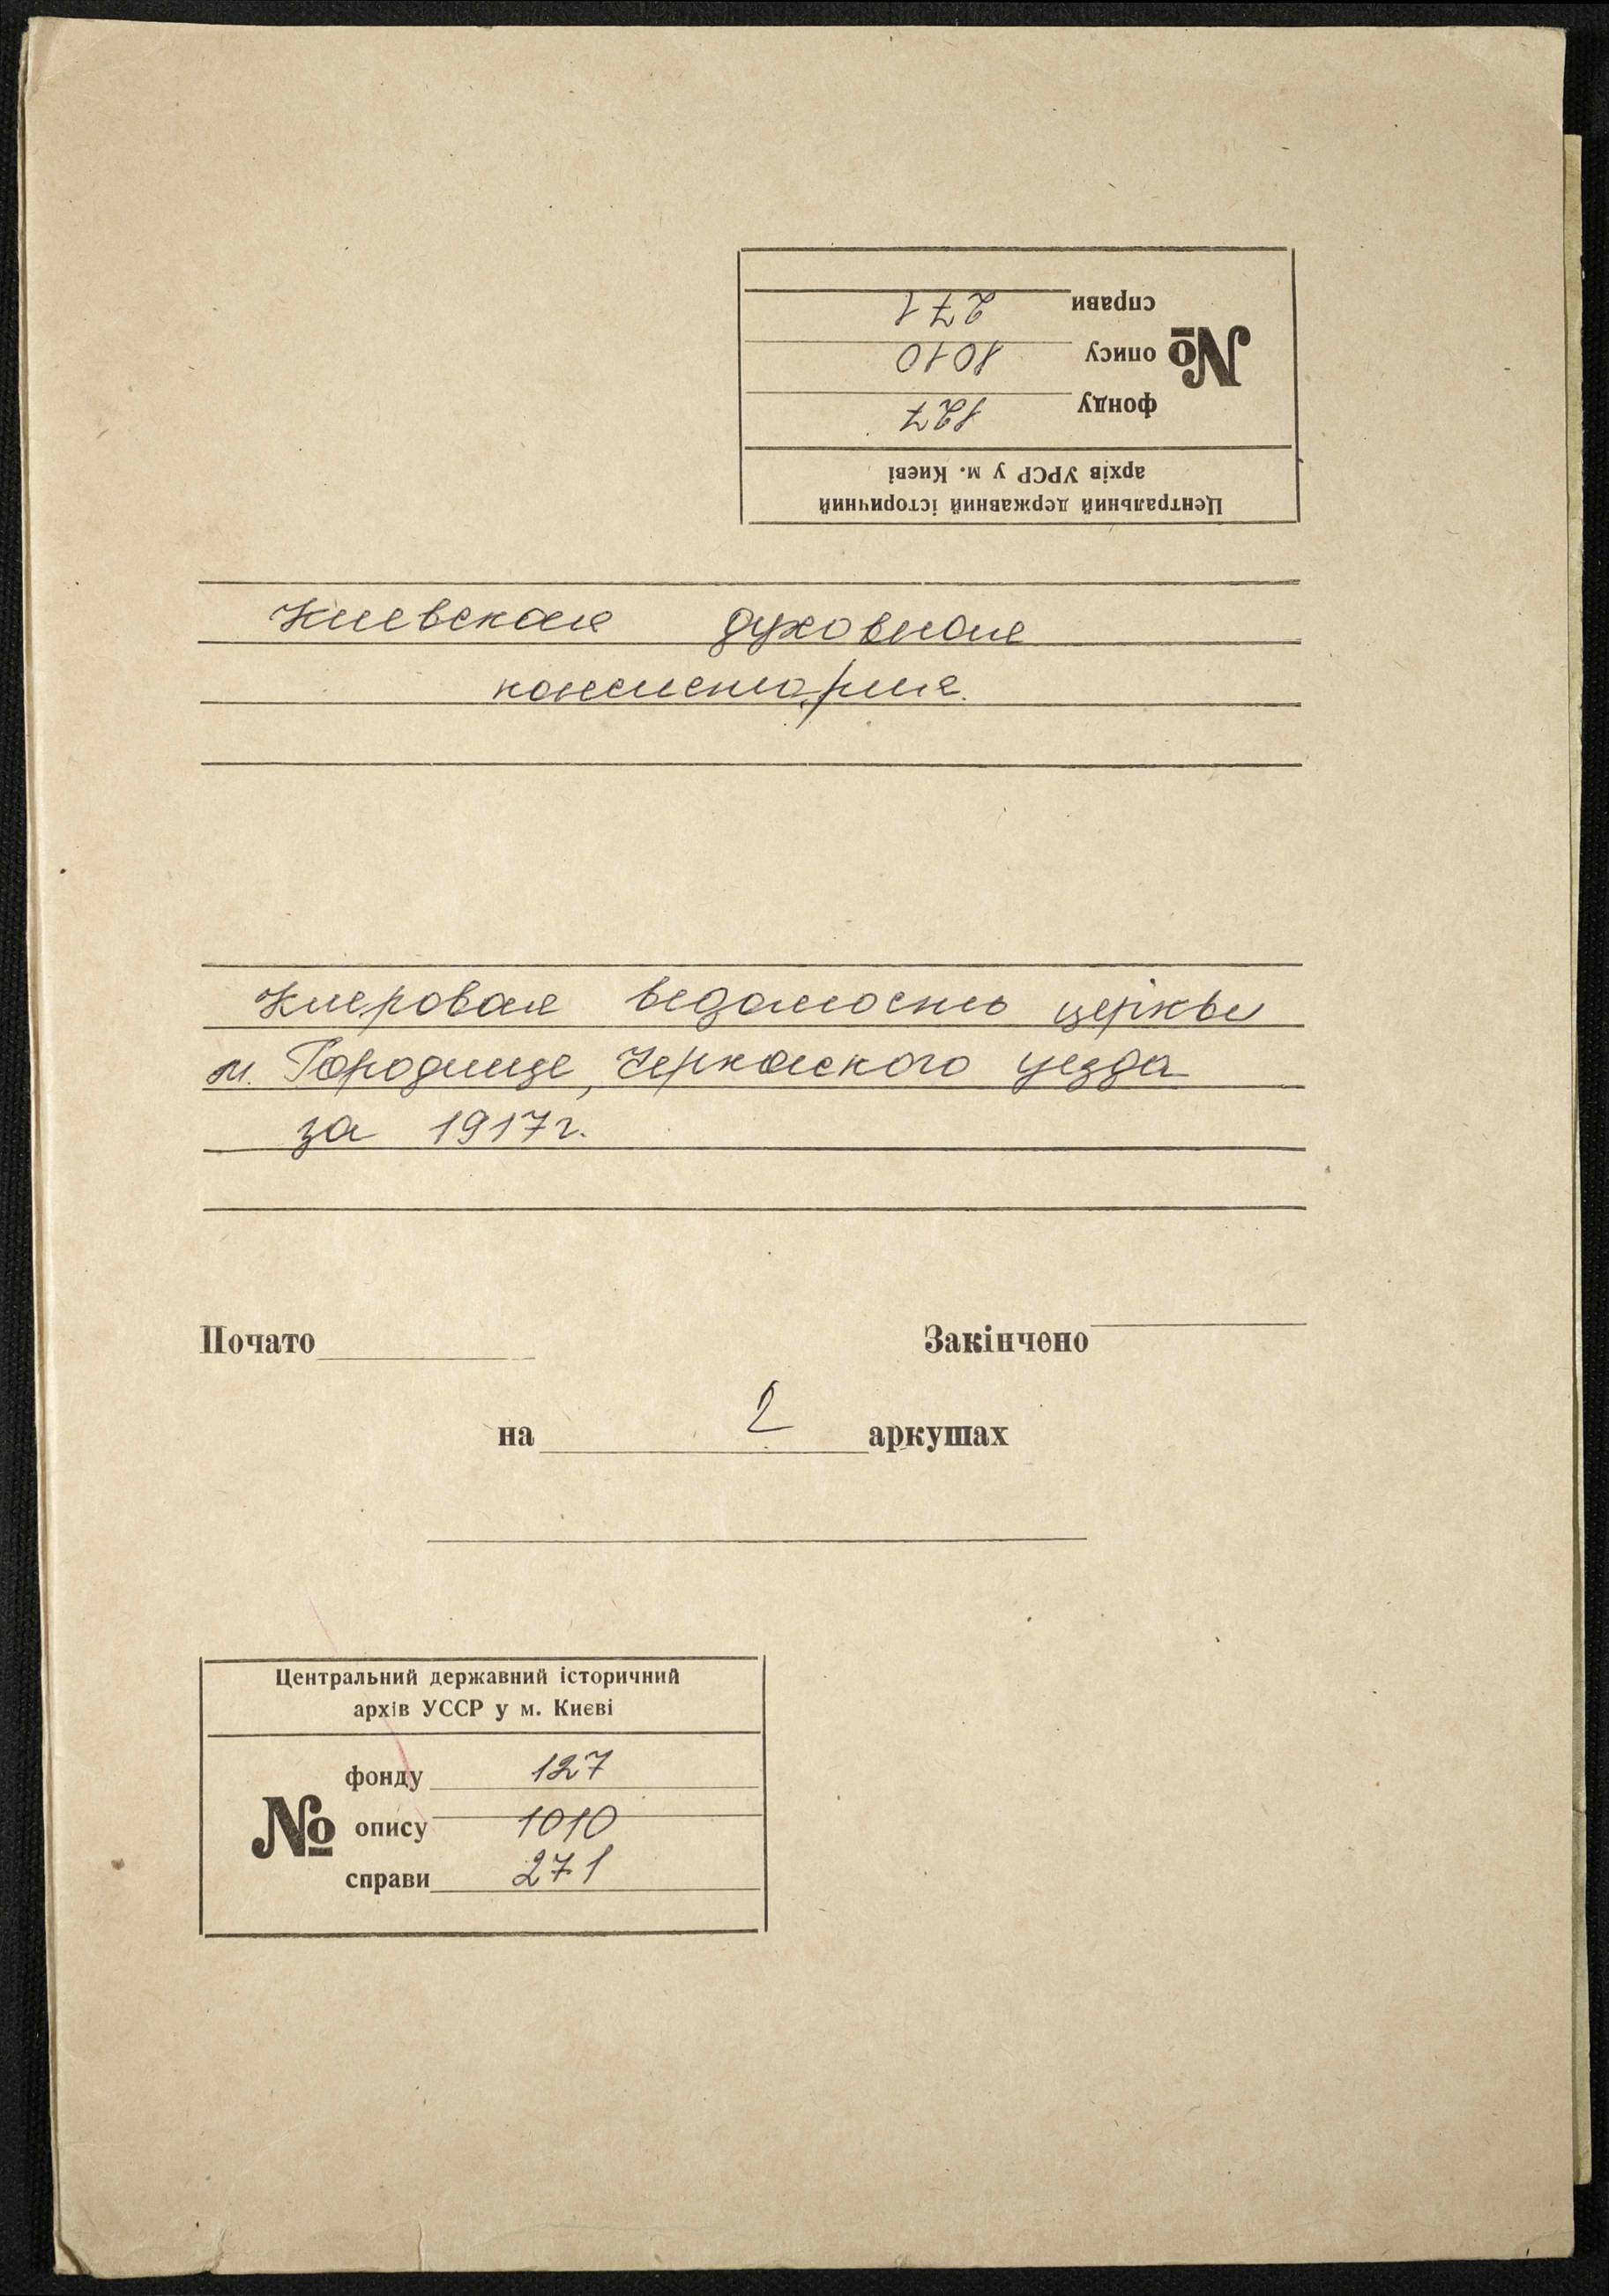 Центральний державний історичний
архів УРСР у м. Києві
№
фонду 127
опису 1010
справи 271
Киевская духовная
консистория.
Клировая ведомость церкви
м. Городище, Черкасского уезда
за 1917г.
Почато Закінчено
на 2 аркушах
Центральний державний історичний
архів УССР у м. Києві
№
фонду 127
опису 1010
справи 271